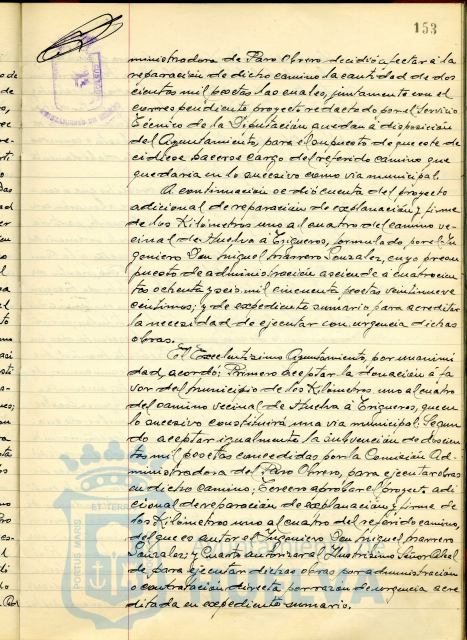 153
ministradora de Paro Obrero decidió afectar á la
reparación de dicho camino la cantidad de dos
cientas mil pesetas las cuales, juntamente con el
correspondiente proyecto redactado por el Servicio
Técnico de la Diputación quedan á disposición
del Ayuntamiento, para el supuesto de que este de
cidiese hacerse cargo del referido camino que
quedaria en lo sucesivo como via municipal.
A continuación se dió cuenta del proyecto
adicional de reparación de explanación y firme
de los Kilómetros uno al cuatro del camino ve-
cinal de Huelva á Trigueros, formulado, por el In
geniero Don Miguel Marrero Gonzalez, cuyo presu
puesto de administración asciende á cuatrocien
tas ochenta y seis mil cincuenta pesetas veintinueve
centimos; y de expediente sumario para acreditar
la necesidad de ejecutar con urgencia dichas
obras.
El Excelentisimo Ayuntamiento, por unanimi
dad, acordó: Primero aceptar la donación á fa
vor del municipio de los Kilómetros uno al cuatro
del camino vecinal de Huelva á Trigueros, que en
lo sucesivo constituirá una via municipal: Segun
do aceptar igualmente la subvención de doscien
tas mil pesetas concedidas por la Comisión Ad-
ministradora del Paro Obrero, para ejecutar obras
en dicho camino; Tercero aprobar el proyecto adi
cional de reparación de explanación y firme de
los Kilómetros uno al cuatro del referido camino,
del que es autor el Ingeniero Don Miguel Marrero
Gonzalez y Cuarto autorizar al Ilustrisimo Señor Alcal
de para ejecutar dichas obras por administración
o contratación directa por razon de urgencia acre
ditada en expediente sumario.
PORTUS MARIS
ET TERRAE
HUELVA